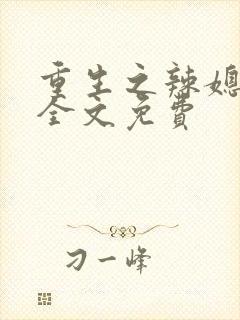 重生之辣媳
全文免费
刁一峰